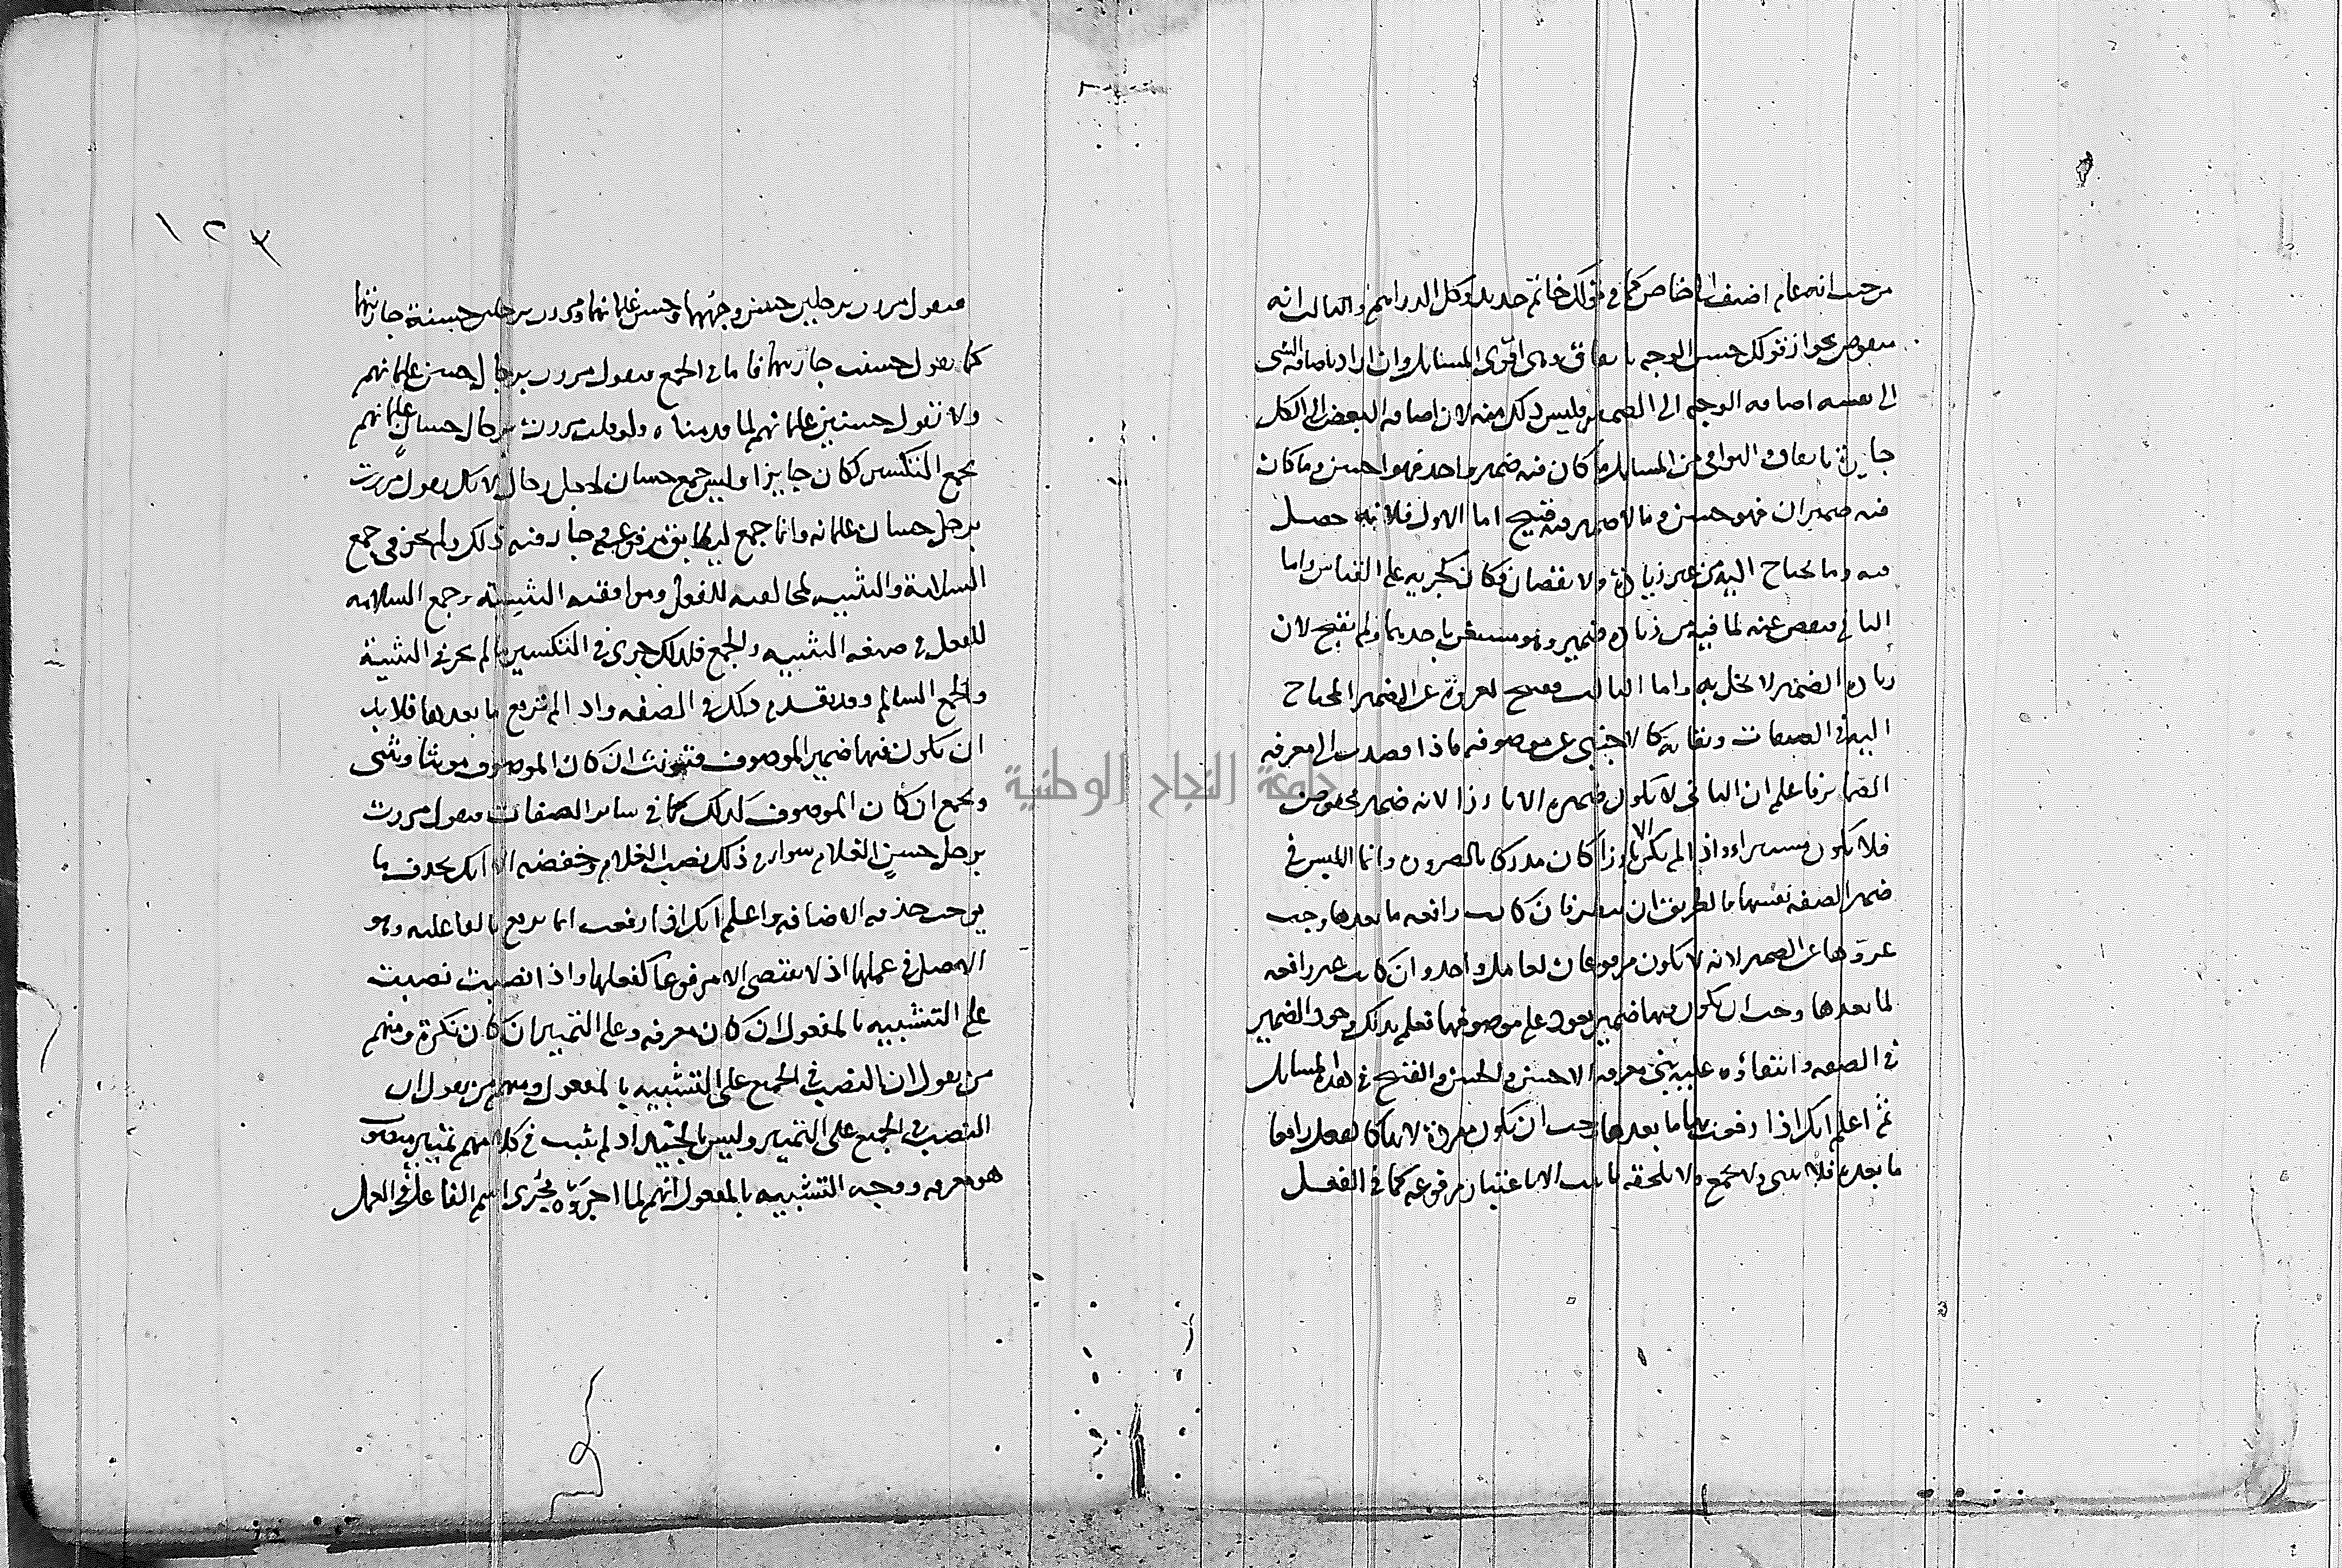 من حيث انه عام اضيف الى خاص كما في قولك خاتم حديد وكل الدراهم والثالث انه
منقوض بجواز قولك حسن الوجه باتفاق وهي اقوى المسايل وان اراد باضافة الشي
الى نفسه اضافة الوجه الى الضمير فليس ذلك منه لان اضافة البعض الى الكل
جايزة باتفاق البواقي من المسايل ما كان فيه ضمير واحد فهو احسن وما كان
فيه ضميران فهو حسن وما لا ضمير فيه قبيح اما الاول فلانه حصل
فيه وما يحتاج اليه من غير زيادة ولا نقصان فكان كجريه على القياس واما
الثاني فنقص عنه لما فيه من زيادة ضمير وهو مستغن باحدهما ولم يقبح لان
زيادة الضمير لا يخل به واما الثالث فقبيح لعروة عن الضمير المحتاج
اليه في الصفات وبقائه كالاجنبي عن موصوفه فاذا قصدت الى معرفة
الضماير فاعلم ان الثاني لا يكون ضميره الا بارزا لانه ضمير مخفوض
فلا يكون مستترا واذا لم يكن الا بارزا كان مدركا بالضرورة وانما اللبس في
ضمير الصفة نفسها فالطريق ان ينظر فان كانت رافعة ما بعدها وجب
عروها عن الضمير لانه لا يكون مرفوعان لعامل واحد وان كانت غير رافعة
لما بعدها وجب ان يكون فيها ضمير يعود على موصوفها فعلم بذلك وجود الضمير
في الصفة وانتفاؤه عليه تبنى معرفة الاحسن والحسن والقبيح في هذه المسايل
ثم اعلم انك اذا رفعت بها ما بعدها وجب ان يكون مفردة لانها كالفعل رافعا
ما بعده فلا يثنى ولا يجمع ولا يلحقه تانيث الا باعتبار مرفوعه كما في الفعل
١٢٣
فتقول مررت برجلين حسن وجههما وحسن غلمانهما ومررت برجلين حسنة جاريتهما
كما تقول حسنت جاريتهما فاما في الجمع فتقول مررت برجال حسن غلمانهم
ولا تقول حسنين غلمانهم لما قدمناه ولو قلت مررت برجال حسان غلمانهم
بجمع التكسير لكان جايزا وليس جمع حسان لاجل رجال لانك تقول مررت
برجل حسان غلمانه وانما جمع ليطابق مرفوعه وجاز فيه ذلك ولم يجز في جمع
السلامة والتثنيه لمخالفته للفعل وموافقه التثنية وجمع السلامه
للفعل في صيغه التثنيه والجمع فلذلك جرى في التكسير ما لم يجر في التثنية
والجمع السالم وقد تقدم ذلك في الصفه واذا لم ترفع ما بعدها فلا بد
ان يكون فيها ضمير الموصوف فتؤنث ان كان الموصوف مونثا وتثنى
وتجمع ان كان الموصوف كذلك كما في ساير الصفات فتقول مررت
برجل حسن الغلام سواء في ذلك نصب الغلام وخفضه الا انك تحذف ما
يوجب حذفه الاضافه واعلم انك اذا رفعت انما ترفع بالفاعليه وهو
الاصل في عملها اذ لا يقتضي الا مرفوعا كفعلها واذا نصبت نصبت
على التشبيه بالمفعول ان كان معرفه وعلى التمييز ان كان نكرة ومنهم
من يقول ان النصب في الجميع على التشبيه بالمفعول ومنهم من يقول ان
النصب في الجميع على التمييز وليس بالجيد اذ لم يثبت في كلامهم تمييز منصوب
هو معرفه ووجه التشبيه بالمفعول انهم لما اجروه مجرى اسم الفاعل في العمل
جامعة النجاح الوطنية